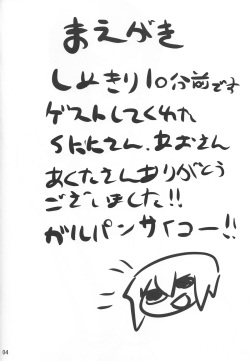 まえがき
しめきり10分前です
ゲストしてくれた
さん、あおさん
あくたさんありがとう
ございました!!
ガルパンサイコー!!
04